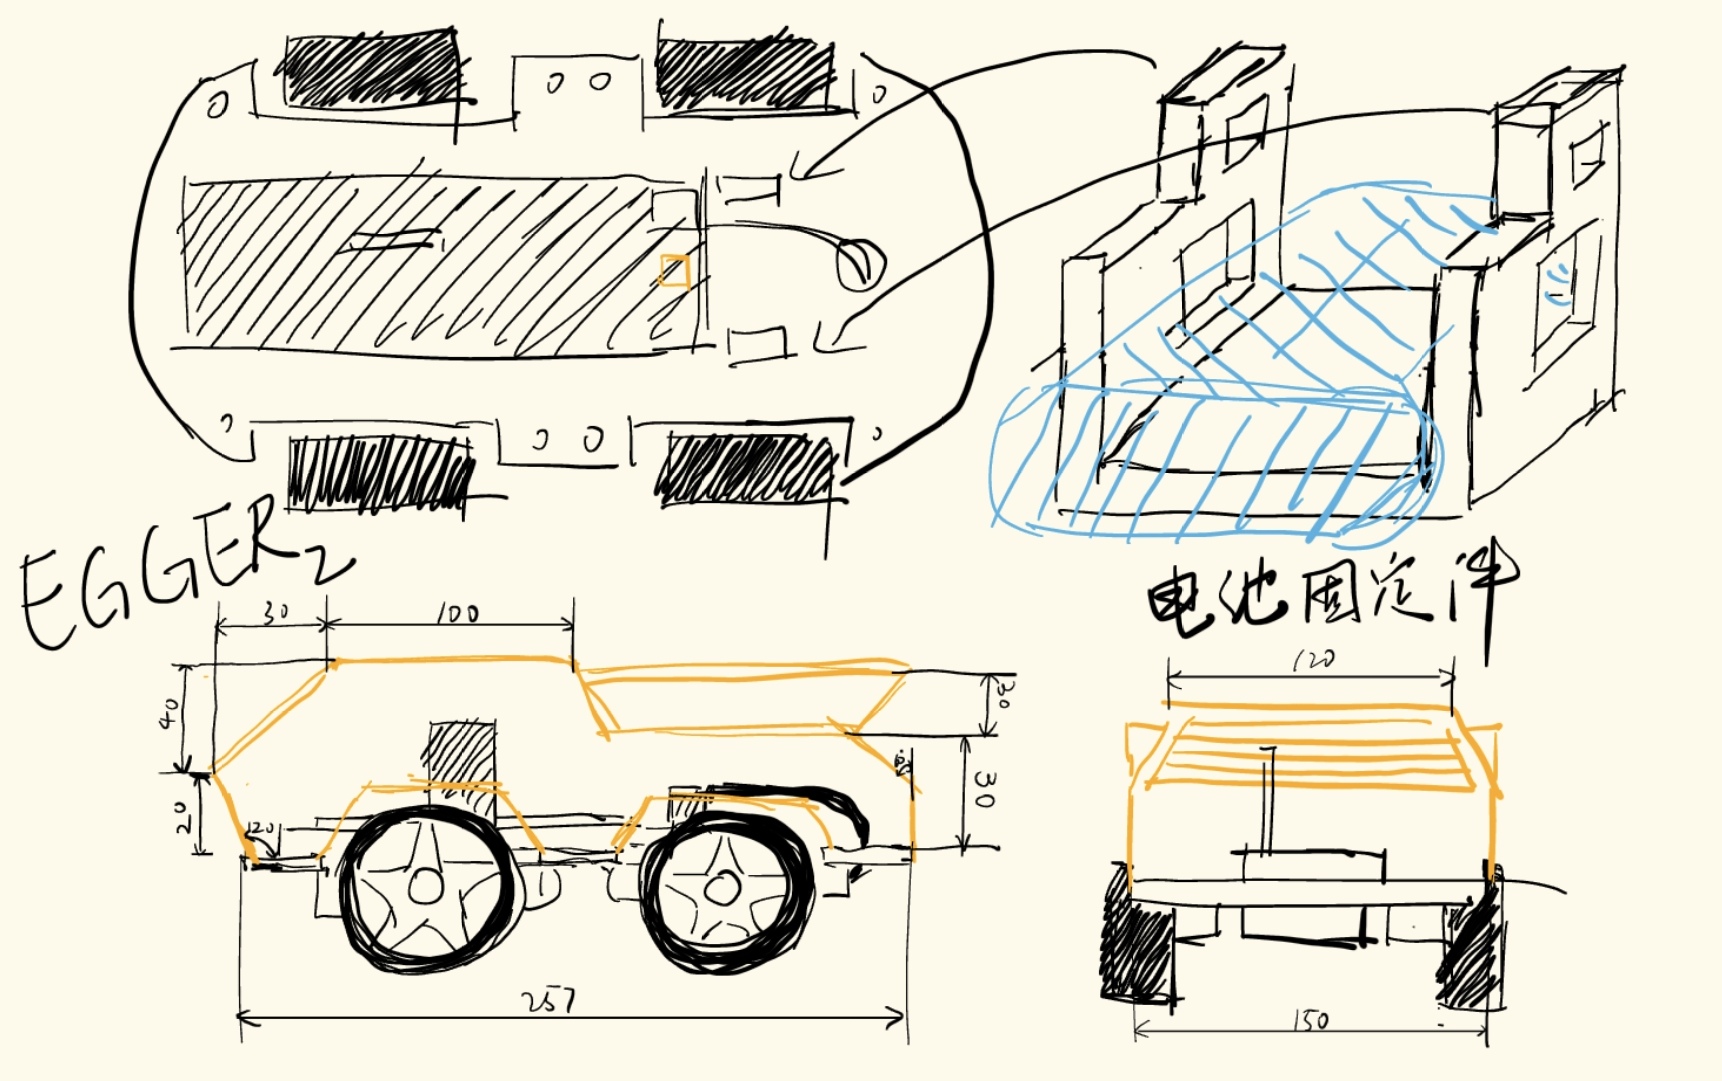 EGGER2
电池固定件
30
100
40
20
120
20
30
257
120
150